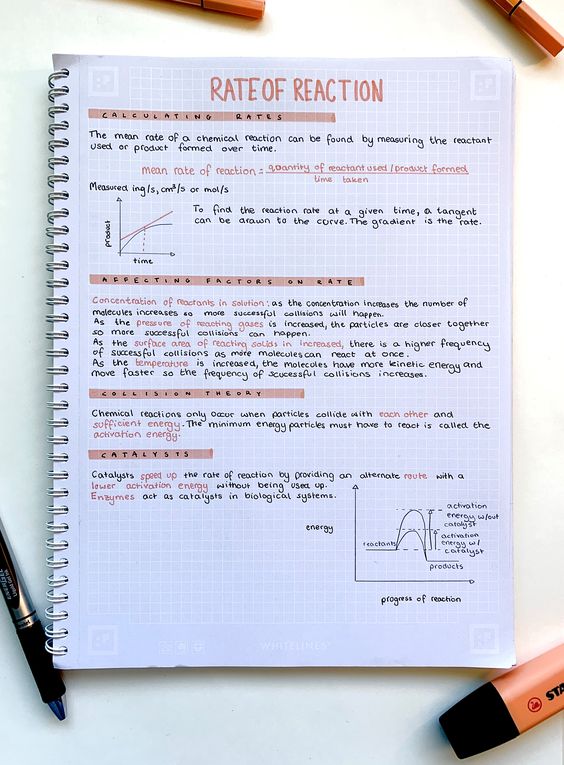 RATE OF REACTION
CALCULATING RATES
The mean rate of a chemical reaction can be found by measuring the reactant
used or product formed over time.
mean rate of reaction = quantity of reactant used / product formed
time taken
Measured in g/s, cm³/s or mol/s
product
time
To find the reaction rate at a given time, a tangent
can be drawn to the curve. The gradient is the rate.
AFFECTING FACTORS ON RATE
Concentration of reactants in solution: as the concentration increases the number of
molecules increases so more successful collisions will happen.
As the pressure of reacting gases is increased, the particles are closer together
so more successful collisions can happen.
As the surface area of reacting solids in increased, there is a higher frequency
of successful collisions as more molecules can react at once.
As the temperature is increased, the molecules have more kinetic energy and
move faster so the frequency of scuccessful collisions increases.
COLLISION THEORY
Chemical reactions only occur when particles collide with each other and
sufficient energy. The minimum energy particles must have to react is called the
activation energy.
CATALYSTS
Catalysts speed up the rate of reaction by providing an alternate route with a
lower activation energy without being used up.
Enzymes act as catalysts in biological systems.
energy
reactants
activation
energy w/out
catalyst
activation
energy w/
catalyst
products
progress of reaction
WHITELINES®
STA